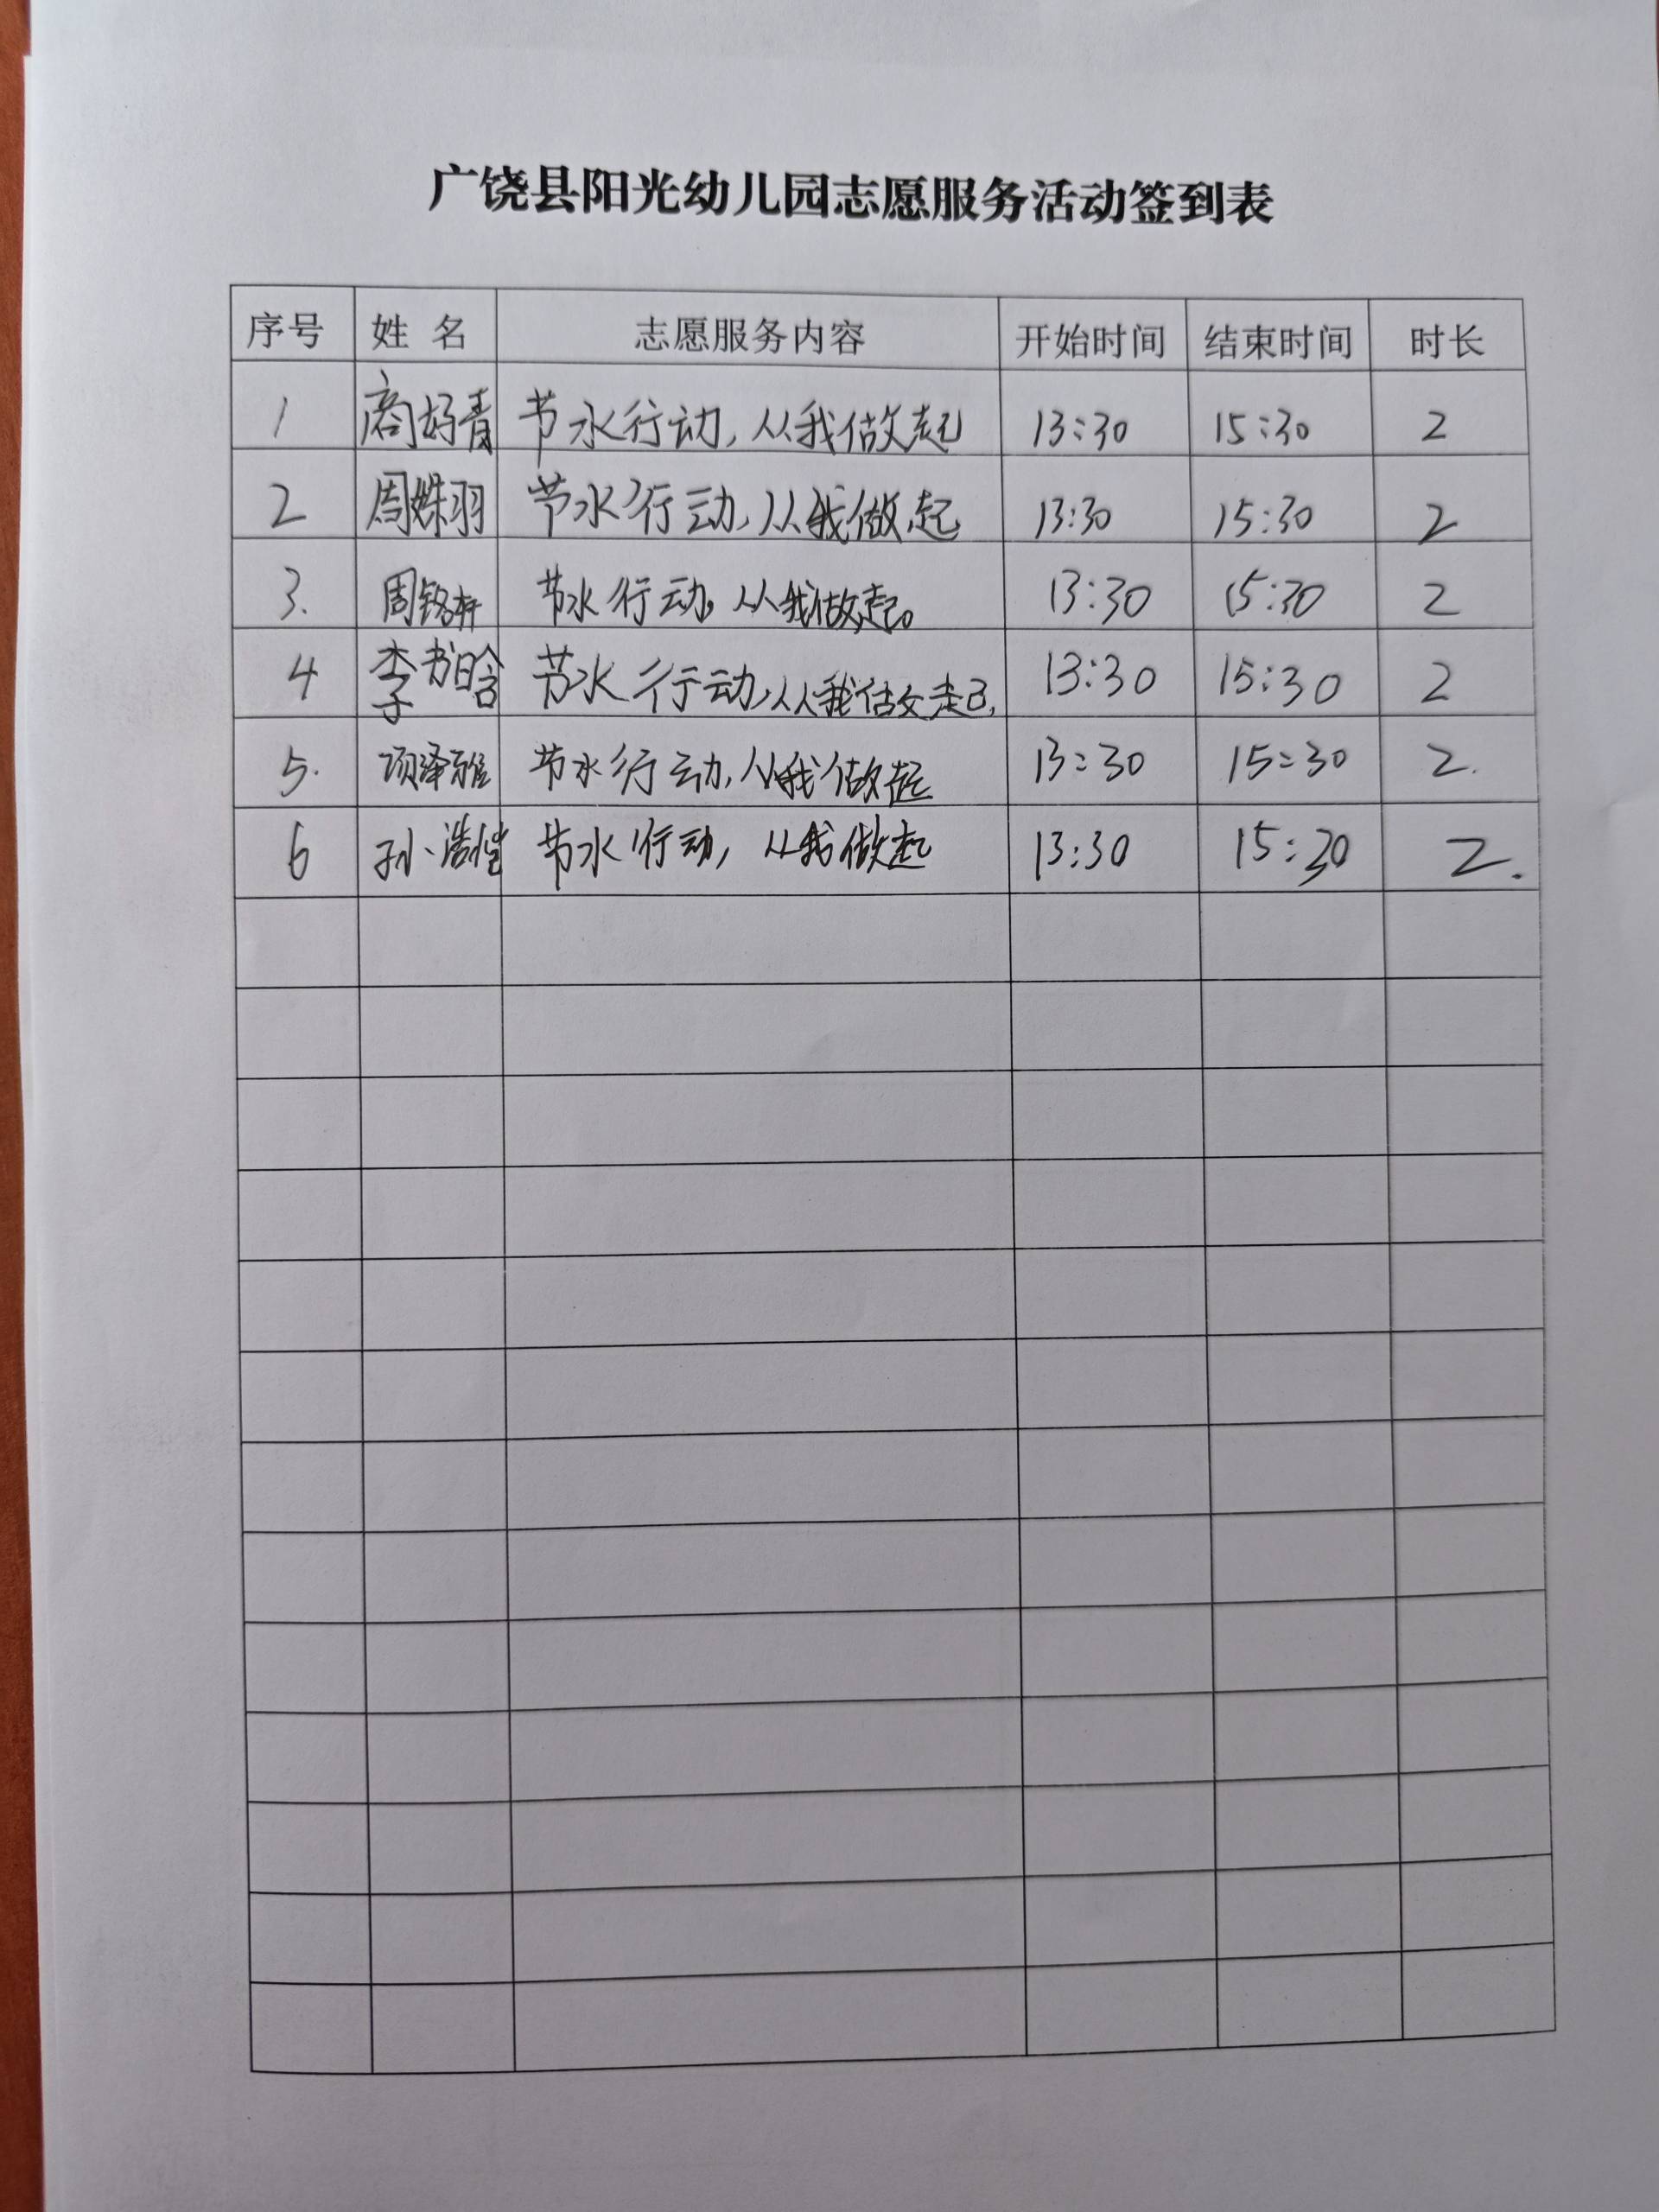 广饶县阳光幼儿园志愿服务活动签到表
序号 姓 名 志愿服务内容 开始时间 结束时间 时长
1 商好青 节水行动,从我做起 13:30 15:30 2
2 周姝羽 节水行动,从我做起 13:30 15:30 2
3. 周铭轩 节水行动,从我做起。 13:30 15:30 2
4 李书晗 节水行动,从我做起, 13:30 15:30 2
5. 项泽雅 节水行动,从我做起 13:30 15:30 2.
6 孙浩恺 节水行动,从我做起 13:30 15:30 2.